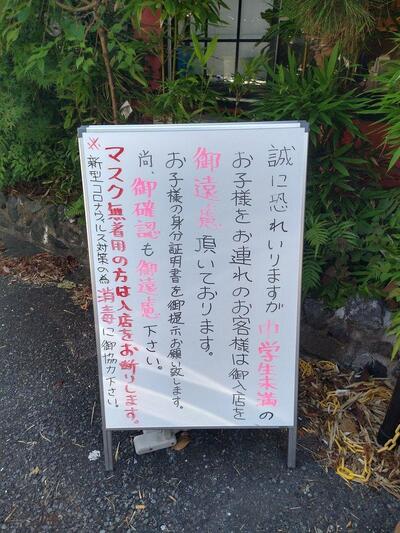 誠に恐れいりますが小学生未満の
お子様をお連れのお客様は御入店を
御遠慮頂いております。
お子様の身分証明書を御提示お願い致します。
尚、御確認も御遠慮下さい。
マスク無着用の方は入店をお断りします。
※新型コロナウィルス対策の為消毒に御協力下さい。